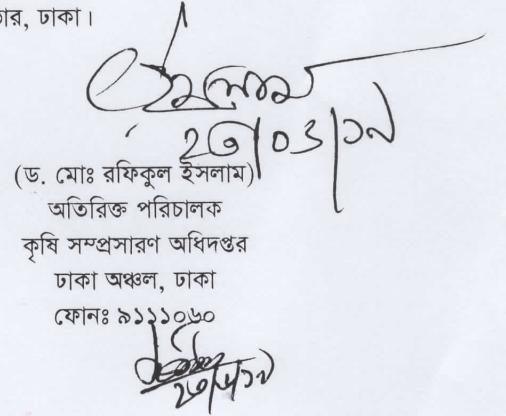 তার, ঢাকা।
ইসলাম
২৩/০৩/১৯
(ড. মোঃ রফিকুল ইসলাম)
অতিরিক্ত পরিচালক
কৃষি সম্প্রসারণ অধিদপ্তর
ঢাকা অঞ্চল, ঢাকা
ফোনঃ ৯১১১০৬০